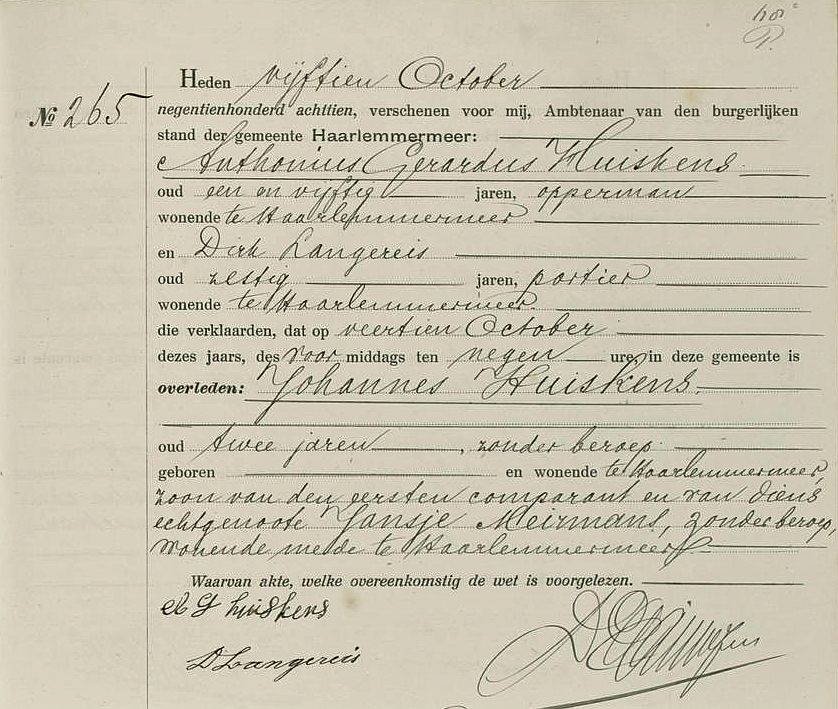 Nº 265
Heden vijftien October
negentienhonderd achttien, verschenen voor mij, Ambtenaar van den burgerlijken
stand der gemeente Haarlemmermeer:
Anthonius Gerardus Huiskens
oud een en vijftig jaren, opperman
wonende te Haarlemmermeer
en Dirk Langereis
oud zestig jaren, portier
wonende te Haarlemmermeer.
die verklaarden, dat op veertien October
dezes jaars, des voor middags ten negen ure, in deze gemeente is
overleden: Johannes Huiskens.
oud twee jaren, zonder beroep.
geboren en wonende te Haarlemmermeer,
zoon van den eersten comparant en van diens
echtgenoote Jansje Meirmans, zonder beroep,
wonende mede te Haarlemmermeer.
Waarvan akte, welke overeenkomstig de wet is voorgelezen.
A G Huiskens
D Langereis